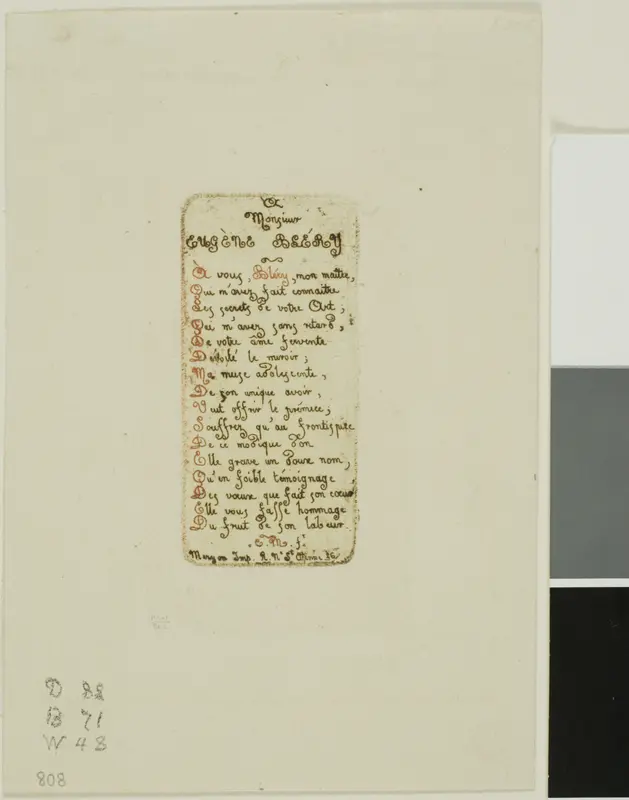 A
Monsieur
EUGÈNE BLÉRY
À vous, Bléry, mon maître,
Qui m'avez fait connaître
Les secrets de votre Art;
Qui m'avez sans retard,
De votre âme fervente
Dévoilé le miroir;
Ma muse adolescente,
De son unique avoir,
Veut offrir le prémice;
Souffrez qu'au frontispice
De ce modique don
Elle grave un doux nom,
Qu'en foible témoignage
Des vœux que fait son cœur
Elle vous fasse hommage
Du fruit de son labeur.
C.M. ft
Meryon Imp. R. Ne St Etienne
D 88
B 71
W 48
808